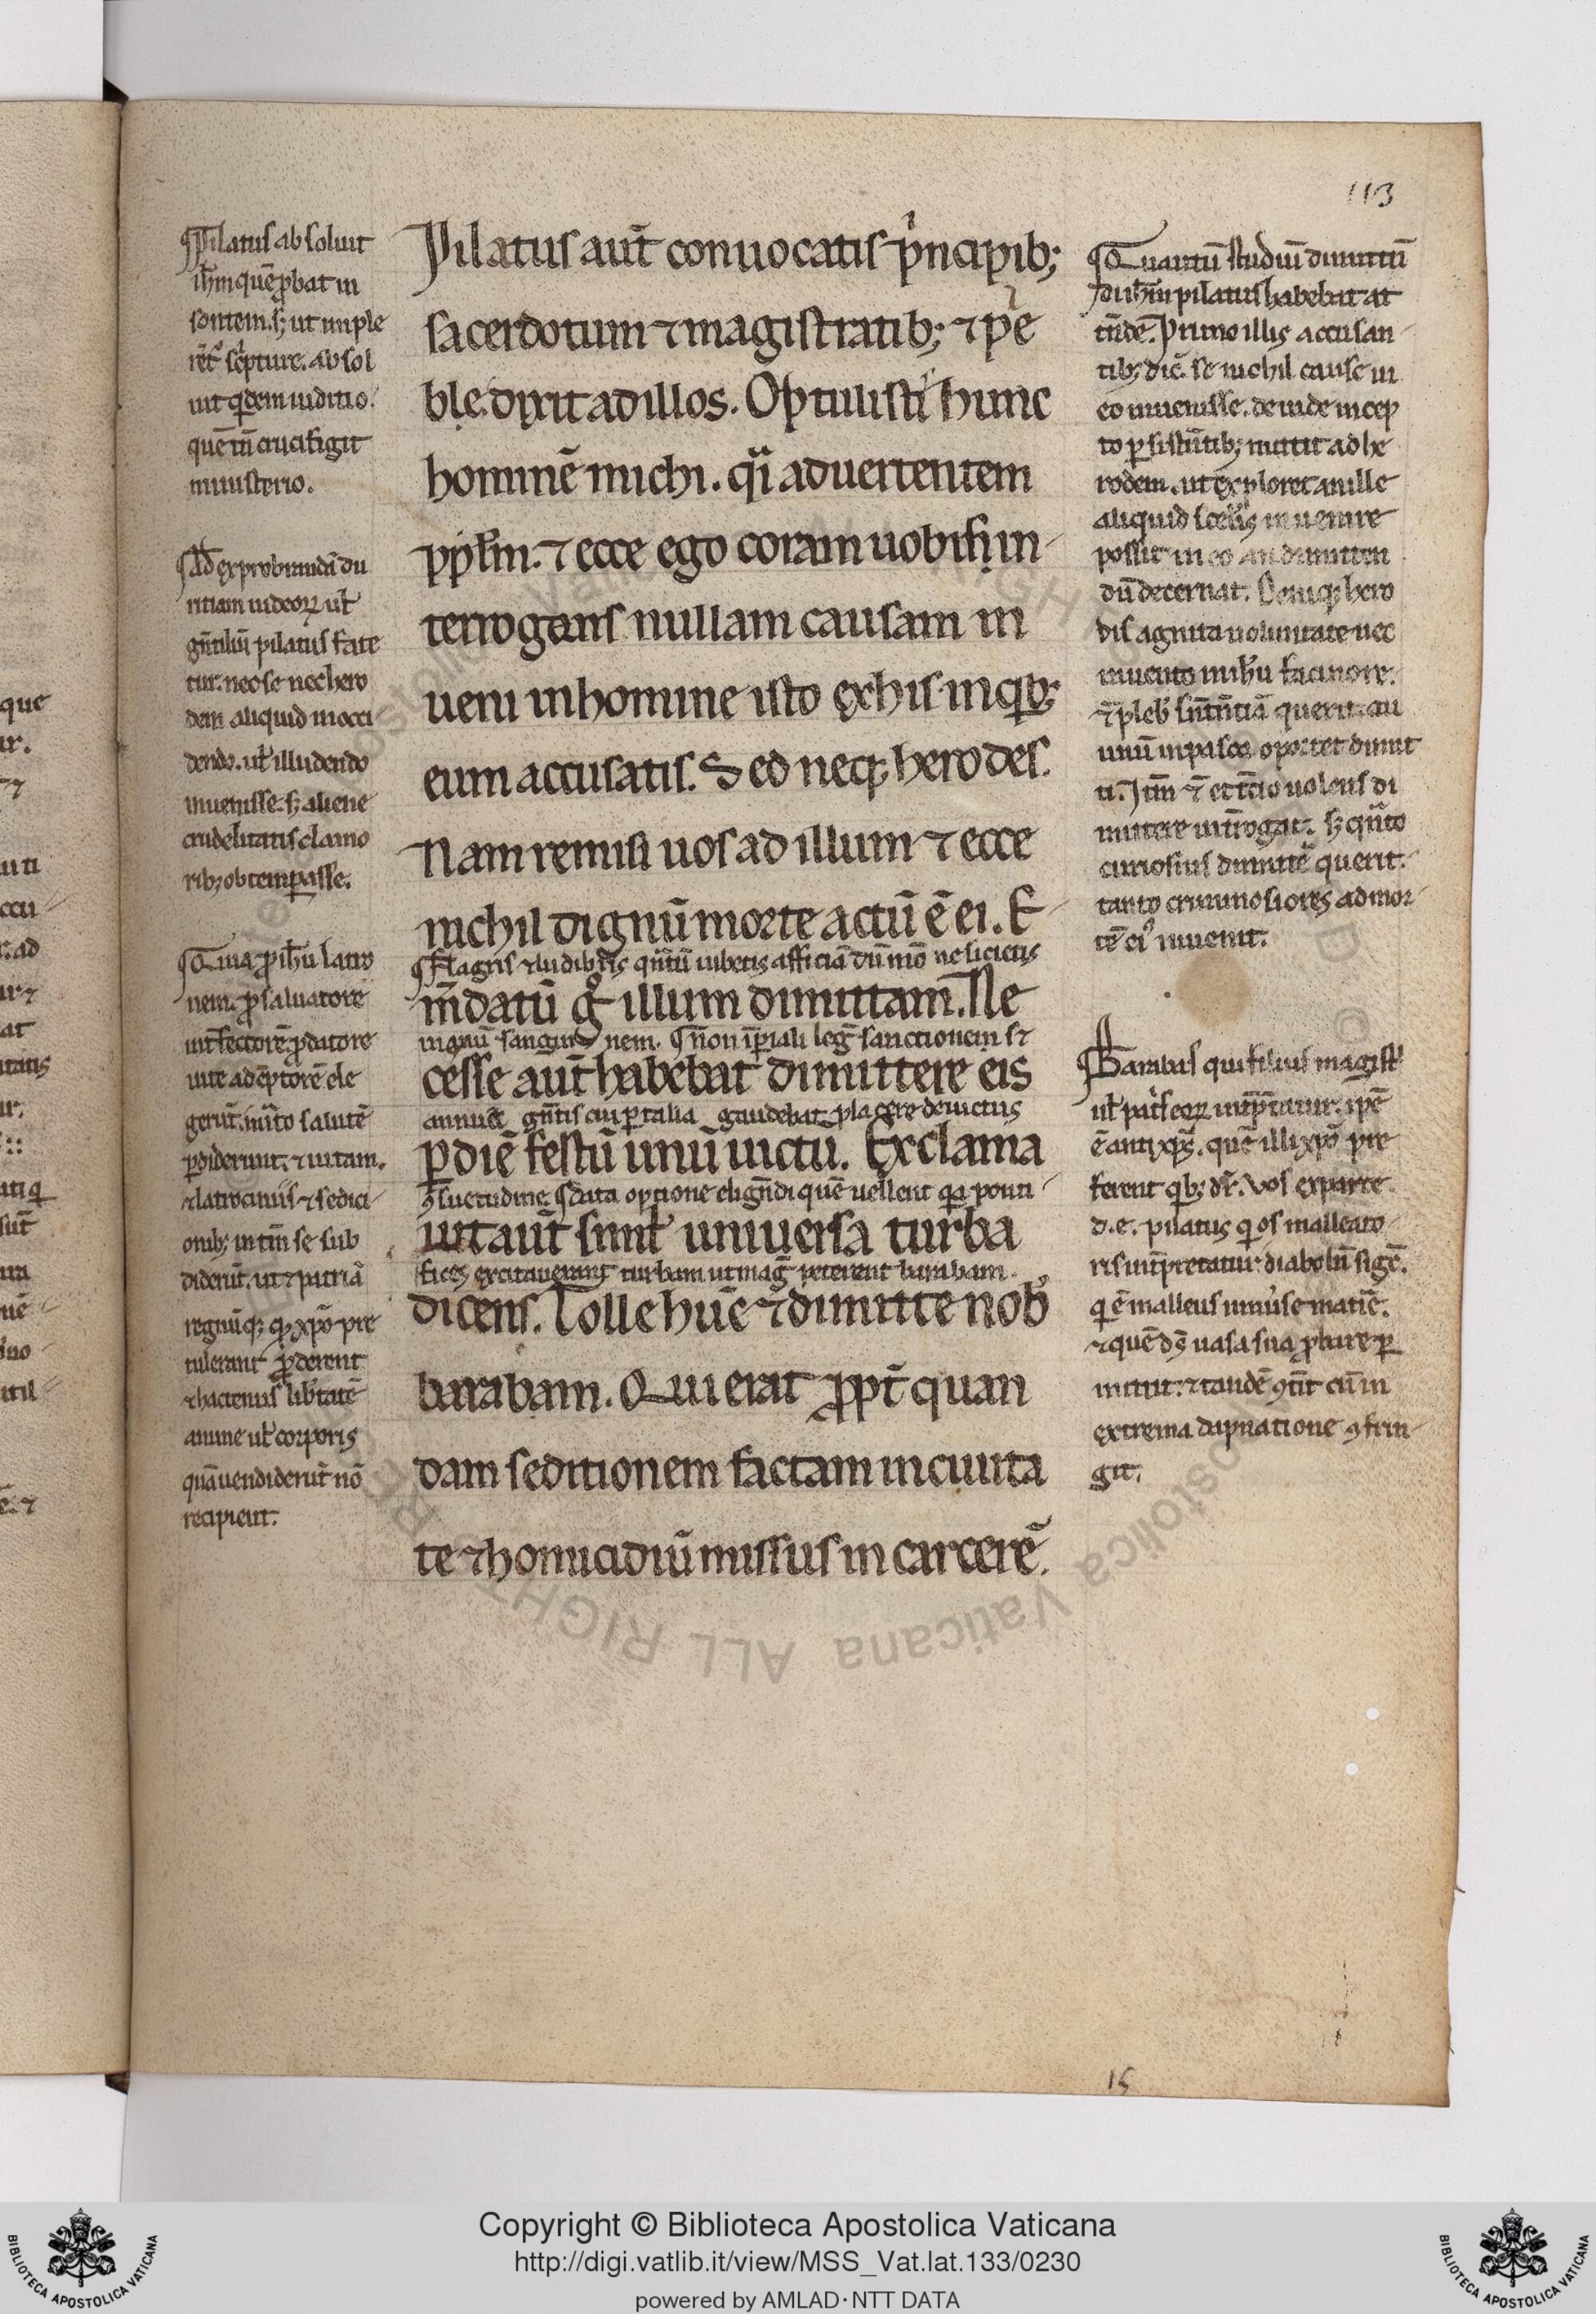 113
Pilatus absoluit
ih̄m quē ꝓbat in
sontem. sꝫ ut imple
rēt᷑ sc̄pture. absol
uit qͥdem iuditio.
quē tn̄ crucifigit
ministerio.
Ad exprobrandā du
ritiam iudeoꝝ ul̄
gn̄tiliū pilatus fate
tur. nec se nec hero
dem aliquid in occi
dendo. ul̄ illudendo
inuenisse. sꝫ aliene
crudelitatis clamo
ribꝫ obtemꝑasse.
Quia ꝓ ih̄u latro
nem. ꝓ saluatore
int̄fectorē. ꝓ datore
uite adēptorē ele
gerūt. mͥto salutē
ꝑdiderunt. ⁊ uitam.
⁊ latrociniis ⁊ sedici
onibꝫ in tm̄ se sub
diderūt. ut ⁊ patriā
regnūqꝫ qͦ xp̄o pre
tulerant ꝓderent
⁊ hactenus lib̄tatē
anime ul̄ corporis
quā uendiderūt nō
recipient.
Pilatus aut̄ conuocatis pͥncipibꝫ
sacerdotum ⁊ magistratibꝫ ⁊ p̄e
ble. dixit ad illos. Optulistiͥ hunc
hominē michi. qͣi aduertentem
pp̄lm. ⁊ ecce ego coram uobis in
terrogans nullam causam in
ueni in homine isto ex his in qͥbꝫ
eum accusatis. Sed neqꝫ herodes.
Nam remisi uos ad illum ⁊ ecce
nichil dignū morte actū ē ei. E
Flagris ⁊ ludibriis qn̄tū iubetis afficiā dū mō ne licietis
m̄datū gͦ illum dimittam. Ne
innoxiū sanguinem. non īꝑiali leḡ sanctionem sꝫ
cesse aut̄ habebat dimittere eis
annue gn̄tis cui ꝑ talia gaudebat placere deuictus
ꝑ diē festū unū uictu. Exclama
ꝯsuetudine. data optione elign̄di quē uellent qͣ ponti
uit aut̄ simlͥ uniuersa turba
fices excitauerant turbam ut maḡ peterent barabam.
dicens. Tolle hūc ⁊ dimitte nob̄
barabam. Qui erat ꝓpt̄ quan
dam seditionem factam in ciuita
te ⁊ homicidiū missus in carcerē.
Quantū studiū dimittū
di ih̄m pilatus habebat at
tn̄de. Primo illis accusan
tibꝫ dic̄ se nichil cause in
eo inuenisse. deinde incep
to ꝑsistn̄tibꝫ mittit ad he
rodem. ut exploret an ille
aliquid sceleris inuenire
possit in eo an dimitten
dū decernat. Deniqꝫ hero
dis agnita uoluntate nec
inuento in ih̄u facinore.
⁊ plebͥ sn̄tn̄tiā querit. an
unū in pasca oportet dimit
ti. Itm̄ ⁊ et t̄cio uolens di
mittere int̄rogat. sꝫ qn̄to
curiosius dimittē querit.
tanto criminosiores ad mor
tē eiꝰ inuenit.
Barabas qui filius magistͥ
ul̄ patͥs eoꝝ int̄p̄tatur. ipē
ē antixpͥs. quē illi xp̄o pre
ferent qͥbꝫ dr̄. Vos ex parte
d. e. pilatus qͥ os malleato
ris int̄pretatur diabolū sigē.
qͥ ē malleus uniu͛se matiē.
⁊ quē ds̄ uasa sua ꝓbare ꝑ
mittit. ⁊ tandē ꝯtit̄ cū in
extrema dapnatione ꝯfrin
git.
15
Copyright © Biblioteca Apostolica Vaticana
http://digi.vatlib.it/view/MSS_Vat.lat.133/0230
powered by AMLAD·NTT DATA